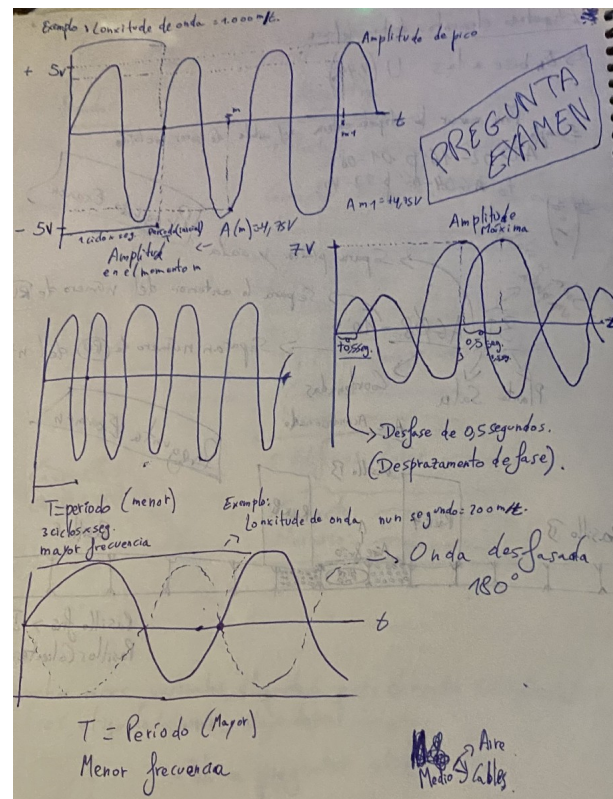 Exemplo: Lonxitude de onda = 1.000 m/t.
Amplitude de pico
+ 5v
t
m
m1
PREGUNTA
EXAMEN
- 5V
1 ciclo x seg.
A(m)=4,75V
A m1=+4,75V
Amplitud
en el momento m
Amplitude
Máxima
7V
t
0,5seg.
0,5 seg.
Desfase de 0,5 segundos.
(Desprazamento de fase).
T=período (menor)
3 ciclos x seg.
mayor frecuencia
Exemplo:
Lonxitude de onda nun segundo=200 m/t.
Onda desfasada
180°
t
T = Período (Mayor)
Menor frecuencia
Medio
Aire
Cables